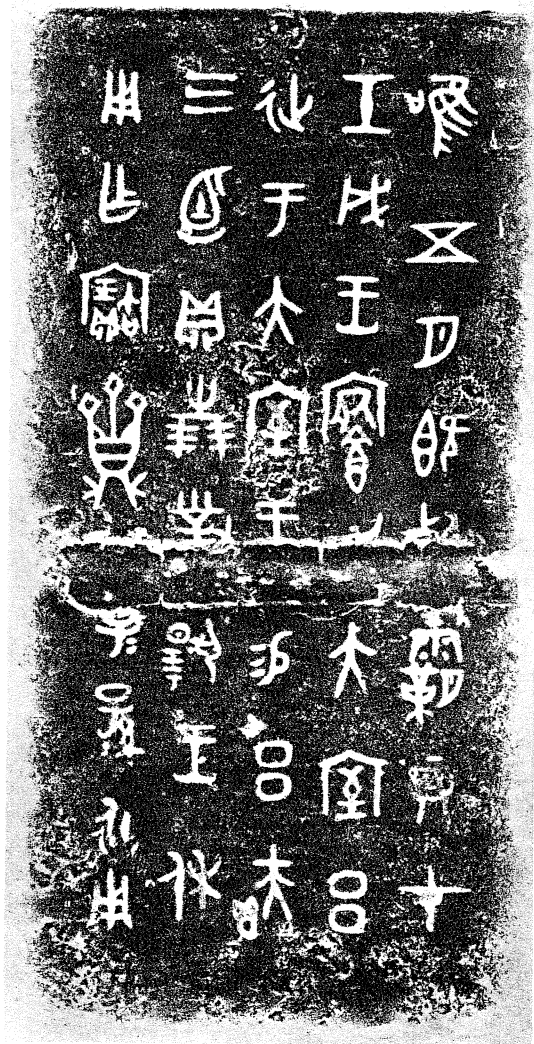 唯五月既死霸辰才
壬戌王于大室呂
延于大室王易呂
三卣貝卅朋對揚王休
用乍寶子子孫孫永用